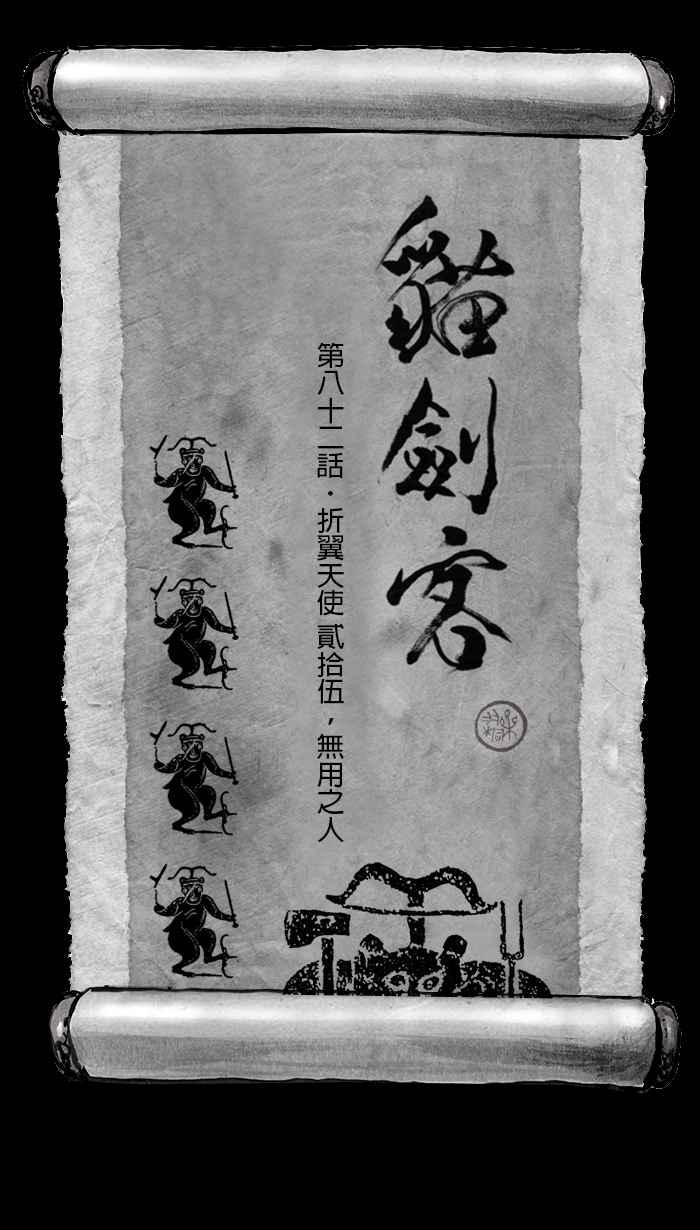 貓劍客
第八十二話・折翼天使 貳拾伍，無用之人